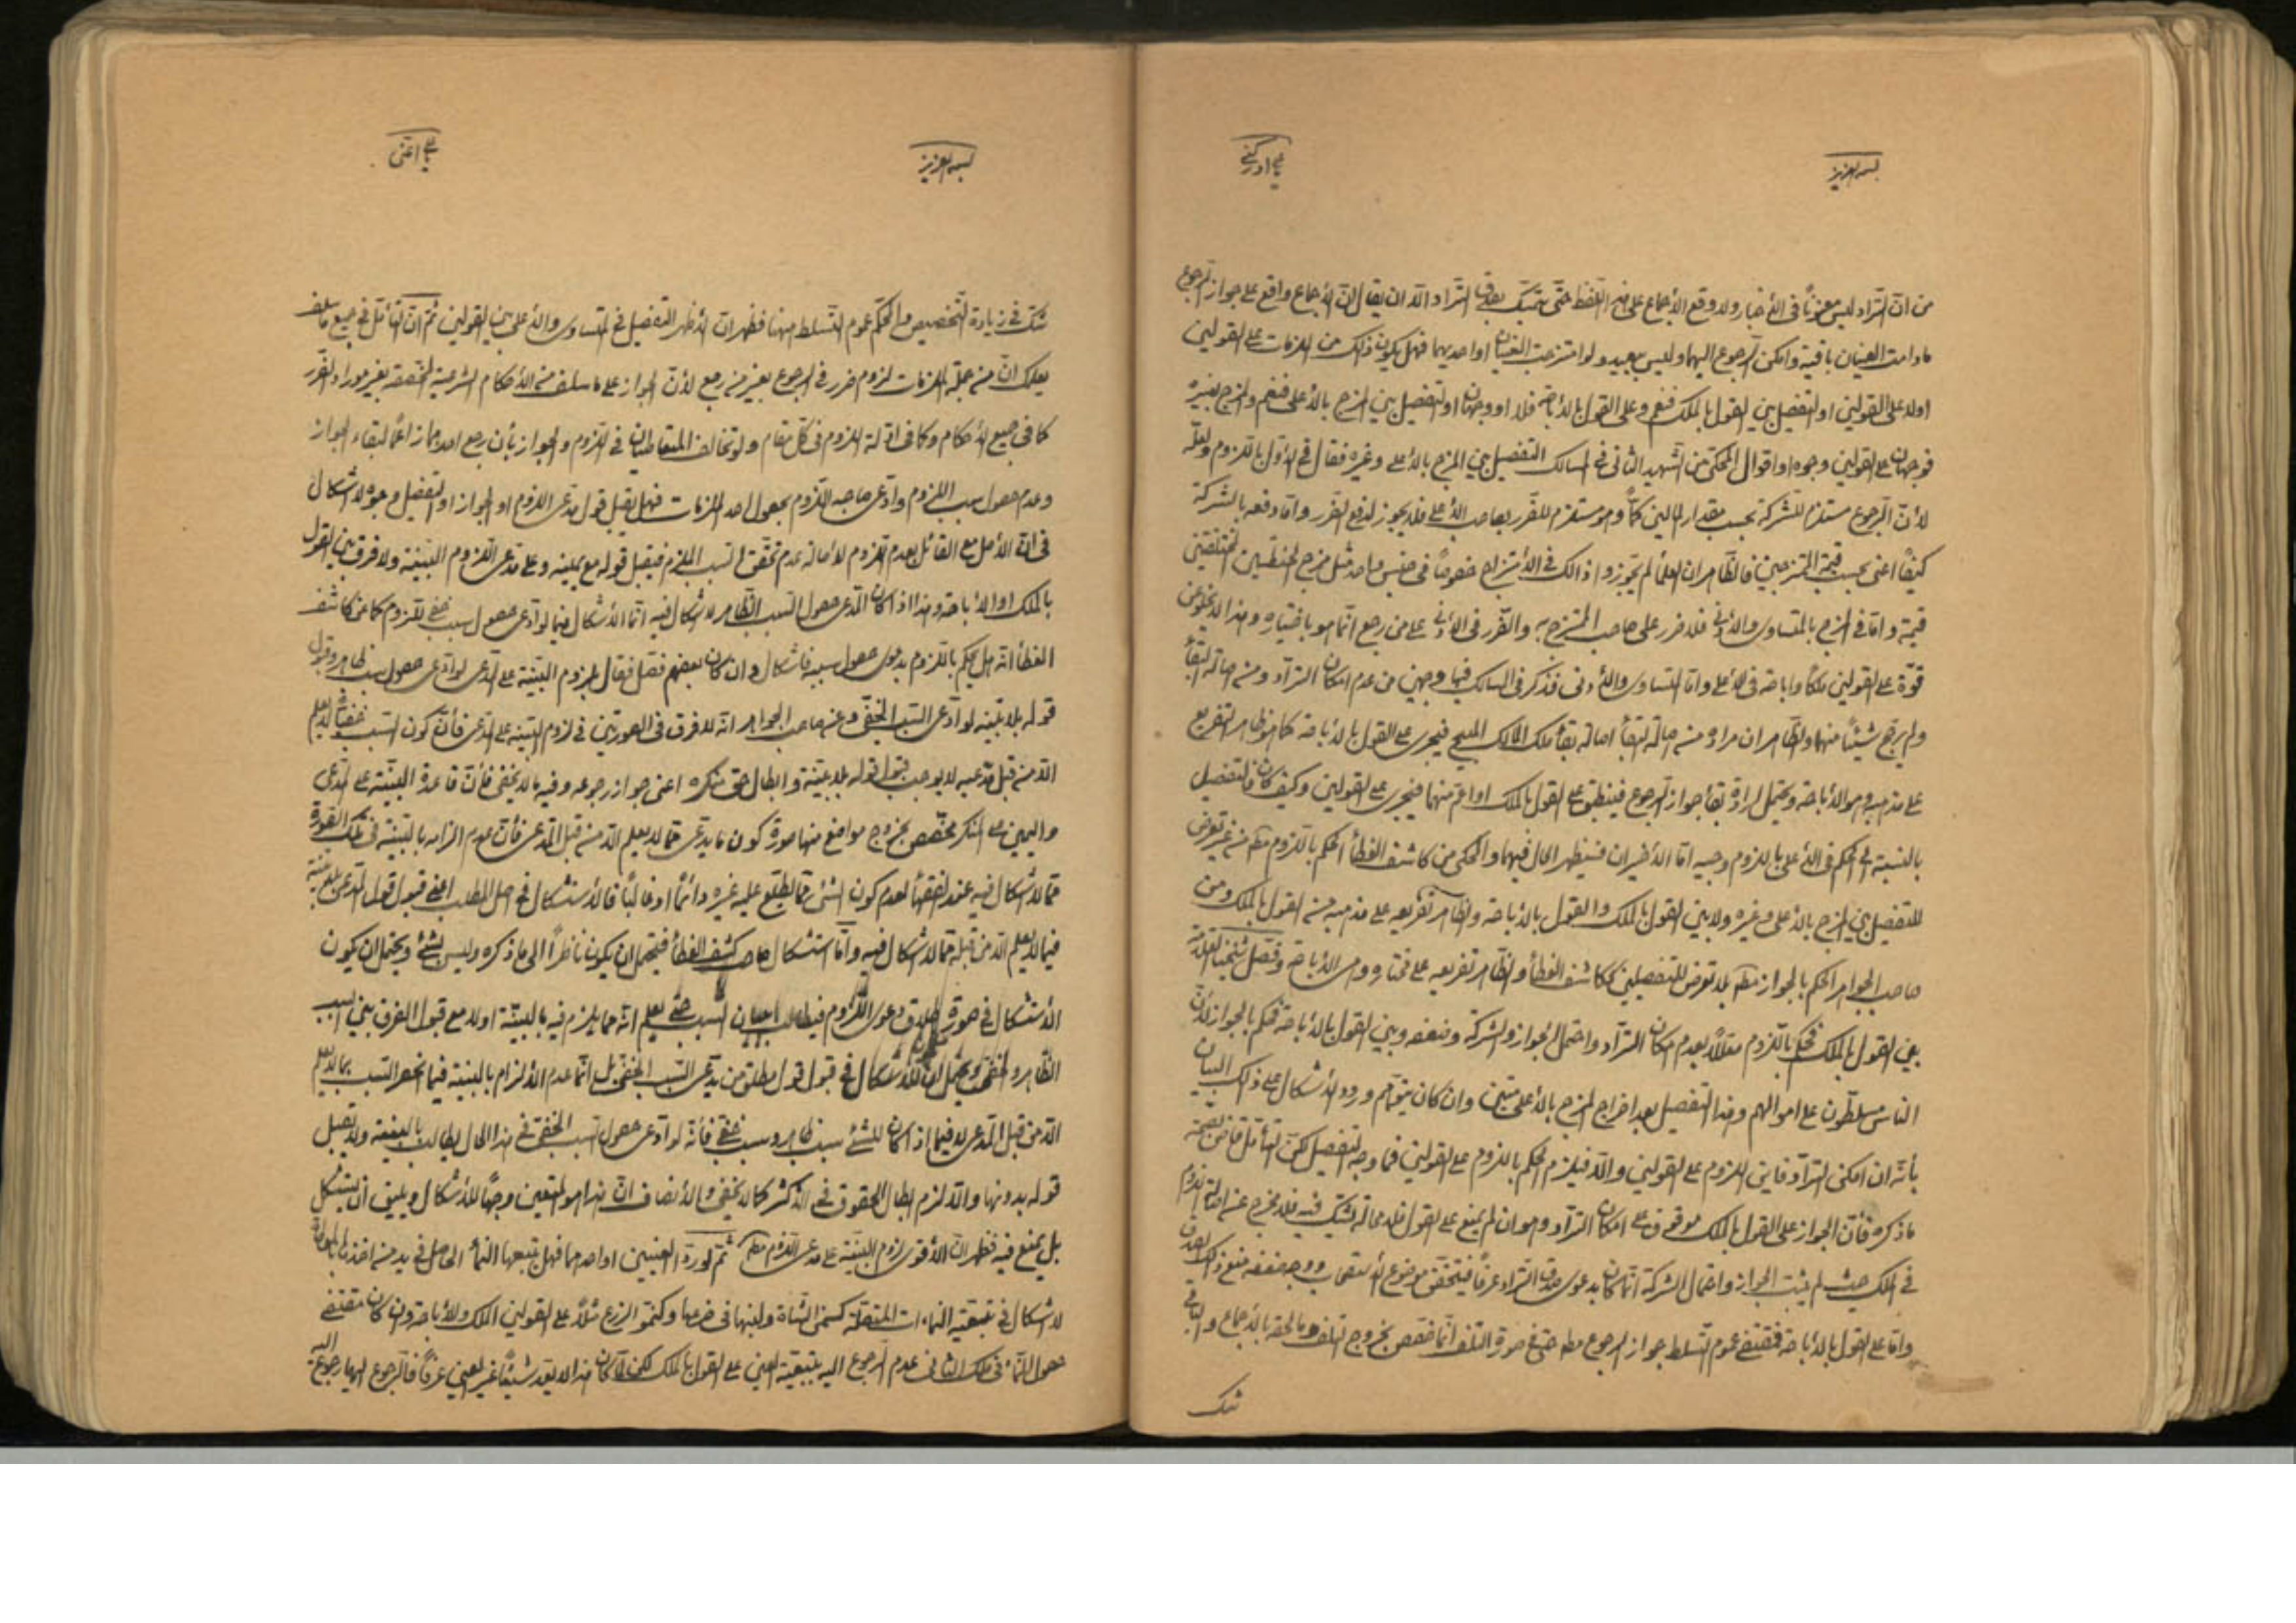 بسمه العزيز
يا علي ادركني
من انّ التراد ليس معنوناً في الأخبار ولا وقع الأجماع على هذا اللفظ حتّى يتمسّك بصدق التراد الّا ان يقال انّ الأجماع واقع على جواز الرجوع
مادامت العينان باقية وامكن الرجوع اليهما وليس ببعيد ولو امتزجت العينان او احديهما فهل يكون ذلك من الملزمات على القولين
اولا على القولين او التفصيل بين القول بالملك فنعم وعلى القول بالأباحة فلا او وجهان او التفصيل بين المزج بالأعلى فنعم والمزج بغيره
فوجهان على القولين وجوه او اقوال المحكى عن الشهيد الثاني في المسالك التفصيل بين المزج بالأعلى وغيره فقال في الأول باللزوم ولعلّه
لأنّ الرجوع مستلزم للشركة بحسب مقدار المالين كمّاً وهو مستلزم للضرر بصاحب الأعلى فلا يجوز لدفع الضرر وامّا دفعه بالشركة
كيفاً اعنى بحسب قيمة الممتزجين فالظاهر ان العلماء لم يجوزوا ذالك في الأمتزاج خصوصاً في جنس واحد مثل مزج الحنطتين المختلفتين
قيمة وامّا في المزج بالمتساوى والأدنى فلا ضرر على صاحب الممتزج به والضّرر في الأدنى على من رجع انّما هو باختياره وهذا لا يخلو عن
قوّة على القولين ملكاً واباحة في الأعلى وامّا التساوى والأدنى فذكر في المسالك فيها وجهين من عدم امكان التراد ومن اصالة البقاء
ولم يرجح شيئاً منهما والظّاهر ان مراده من اصالة البقاء اصالة بقاء ملك المالك المبيح فيجرى على القول بالأباحة كما هو ظاهر التفريع
على مذهبه وهو الأباحة ويحتمل ارادة بقاء جواز الرجوع فينطبق على القول بالملك او اعم منهما فيجرى على القولين وكيف كان فالتفصيل
بالنسبة الى الحكم في الأعلى باللزوم وجيه امّا الأخيران فسيظهر الحال فيهما والمحكى من كاشف الغطاء الحكم باللزوم مطلقا من غير تعرض
للتفصيل بين المزج بالأعلى وغيره ولا بين القول بالملك والقول بالأباحة والظاهر تفريعه على مذهبه من القول بالملك ومن
صاحب الجواهر الحكم بالجواز مطلقا بلا تعرض للتفصيلين ككاشف الغطاء والظّاهر تفريعه على مختاره وهى الأباحة وفصّل شيخنا العلامة
بين القول بالملك فحكم باللزوم معلّلاً بعدم امكان التراد واحتمل الجواز والشركة وضعفه وبين القول بالأباحة فحكم بالجواز لأن
الناس مسلّطون على اموالهم وهذا التفصيل بعد اخراج المزج بالأعلى متين وان كان يتوهم ورود الأشكال على ذلك البيان
بأنّه ان امكن التراد فاين اللزوم على القولين والّا فيلزم الحكم باللزوم على القولين فما وجه التفصيل لكن التأمل قاض بصحة
ما ذكره فأنّ الجواز على القول بالملك موقوف على امكان التراد وهو ان لم يمنع على القول فلا محالة يشك فيه فلا مخرج عن اصالة اللزوم
في الملك حيث لم يثبت الجواز واحتمال الشركة انّما كان بدعوى صدق التراد عرفاً فيتحقق موضوع الأستصحاب ووجه ضعفه منع ذلك الصدق
وامّا على القول بالأباحة فمقتضى عموم التسلط جواز الرجوع مطلقا حتى في صورة التلف انّما خصّص بخروج التلف وما لحقه بالأجماع والباقى
شك
بسمه العزيز
يا علي اغثنى
شك في زيادة التخصيص والمحكم عموم التسلط هيهنا فظهر ان الأظهر التفصيل في المتساوى والأعلى بين القولين ثم انّ التأمل في جميع ما سلف
يعلمك انّ من جملة الملزمات لزوم ضرر في الرجوع بغير من رجع لأنّ الجواز على ما سلف من الأحكام الشرعية المخصصة بغير موارد الضّرر
كما في جميع الأحكام وكما في ادلّة اللزوم في كل مقام ولو تخالف المتعاطيان في اللزوم والجواز بأن رجع احدهما زاعماً لبقاء الجواز
وعدم حصول سبب اللزوم وادّعى صاحبه اللزوم بحصول احد الملزمات فهل يقبل قول مدّعى اللزوم او الجواز او التفصيل وجوه لا اشكال
في انّ الأصل مع القائل بعدم اللزوم لأصالة عدم تحقّق السبب الملزم فيقبل قوله مع يمينه وعلى مدّعى اللزوم البيّنة ولا فرق بين القول
بالملك او الأباحة وهذا اذا كان المدّعى حصول السبب الظّاهر لا اشكال فيه انّما الأشكال فيما لو ادّعى حصول سبب خفى للزوم كما عن كاشف
الغطاء انّه هل يحكم باللزوم بدعوى حصول سببه فاشكال وان كان بعضهم فصّل فقال بلزوم البيّنة على المدّعى لو ادّعى حصول سبب ظاهر وقبول
قوله بلا بيّنة لو ادّعى السبب الخفى وعن صاحب الجواهر انّه لا فرق في الصورتين في لزوم البيّنة على المدّعى فأنّ كون السبب خفيّاً لا يعلم
الّا من قبل مدّعيه لا يوجب قبول قوله بلا بيّنة وابطال حق منكره اعنى جواز رجوعه وفيه ما لا يخفى فأنّ قاعدة البيّنة على المدّعى
واليمين على المنكر مخصّص بخروج مواضع منها صورة كون ما يدّعى ممّا لا يعلم الّا من قبل المدّعى فأنّ عدم الزامه بالبيّنة في تلك الصّورة
ممّا لا اشكال فيه عند الفقهاء لعدم كون الشئ ممّا يطّلع عليه غيره دائماً او غالباً فالأستشكال في اصل المطلب اعنى قبول قول المدّعى بلا بيّنة
فيما لا يعلم الّا من قبله ممّا لا اشكال فيه وامّا استشكال صاحب كشف الغطاء فيحتمل ان يكون ناظراً الى ما ذكره وليس بشئ ويحتمل ان يكون
الأستشكال في صورة اطلاق دعوى اللزوم فيطالب ببيان السبب حتى يعلم انّه ممّا يلزم فيه بالبيّنة اولا مع قبول الفرق بين السبب
الظّاهر والخفى ويحتمل ان الأشكال في قبول قول مطلق من يدّعى السبب الخفى بل انّما عدم الألزام بالبيّنة فيما انحصر السبب بما لا يعلم
الّا من قبل المدّعى لا فيما اذا كان للشئ سبب ظاهر وسبب خفى فأنّه لو ادّعى حصول السبب الخفى في هذا الحال يطالب بالبيّنة ولا يقبل
قوله بدونها والّا لزم ابطال الحقوق في الأكثر كما لا يخفى والأنصاف انّ هذا هو المتعين وجهاً للأشكال ويليق ان يستشكل
بل يمنع فيه فظهر انّ الأقوى لزوم البيّنة على مدّعى اللزوم مطلقا ثم لو ردّ العينين او احدهما فهل يتبعها النماء الحاصل في يد من اخذ بالمعاطاة
لا اشكال في تبعيّة النماءات المتصلة كسمن الشاة ولبنها في ضرعها وكنمو الزرع مثلاً على القولين الملك والأباحة وان كان مقتضى
حصول النماء في ملك الثانى عدم الرجوع اليه بتبعيّة العين على القول بالملك لكن لمّا كان هذا لا يعدّ شيئاً غير العين عرفاً فالرجوع اليها رجوع اليه